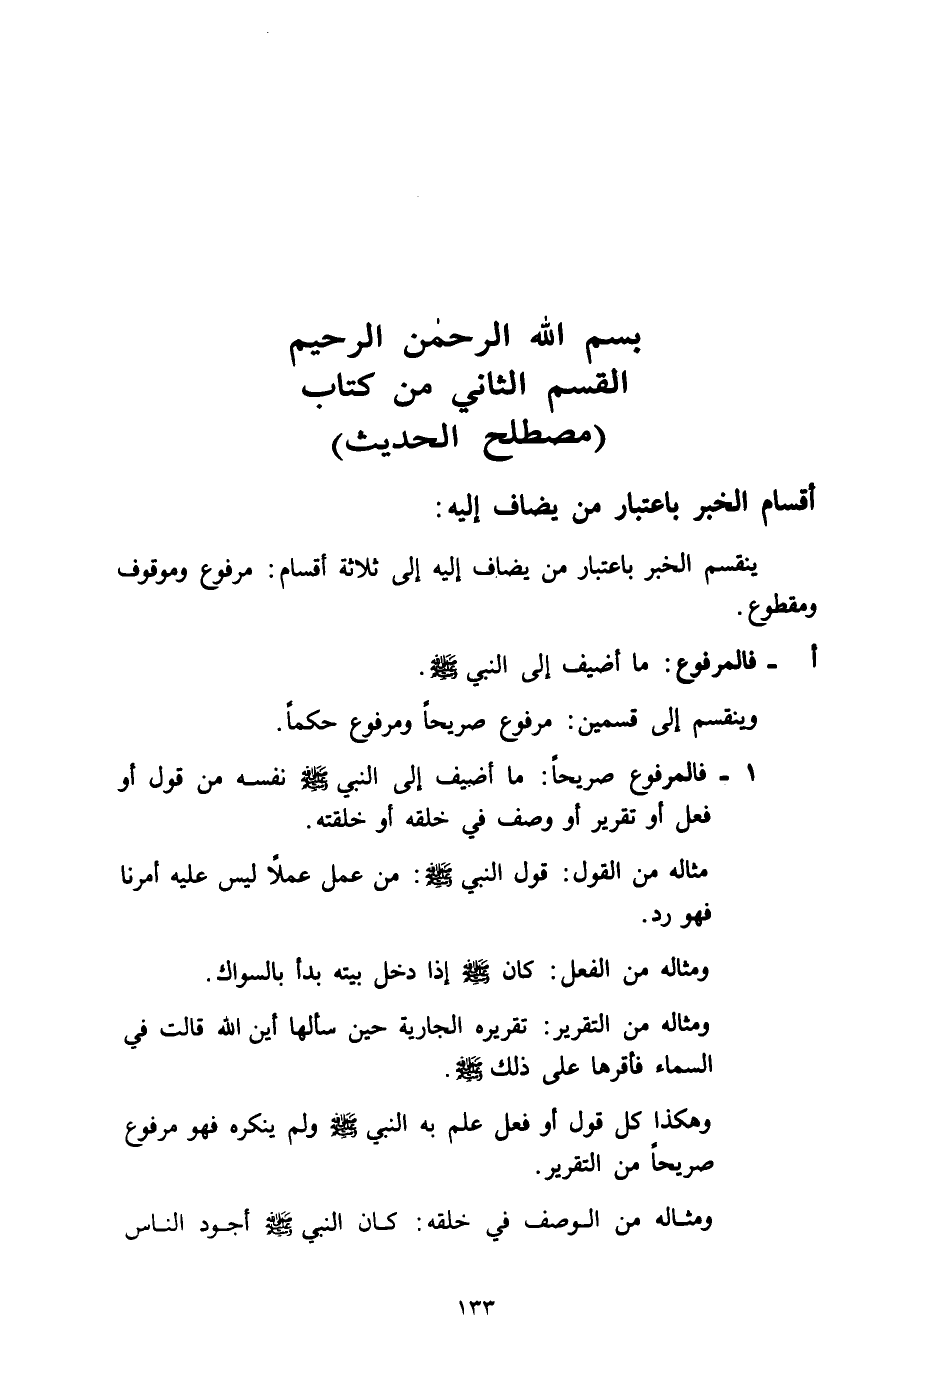 بسم الله الرحمٰن الرحيم
القسم الثاني من كتاب
(مصطلح الحديث)
أقسام الخبر باعتبار من يضاف إليه:
ينقسم الخبر باعتبار من يضاف إليه إلى ثلاثة أقسام: مرفوع وموقوف
ومقطوع.
أ - فالمرفوع: ما أضيف إلى النبي ﷺ.
وينقسم إلى قسمين: مرفوع صريحاً ومرفوع حكماً.
١ - فالمرفوع صريحاً: ما أضيف إلى النبي ﷺ نفسه من قول أو
فعل أو تقرير أو وصف في خلقه أو خلقته.
مثاله من القول: قول النبي ﷺ: من عمل عملاً ليس عليه أمرنا
فهو رد.
ومثاله من الفعل: كان ﷺ إذا دخل بيته بدأ بالسواك.
ومثاله من التقرير: تقريره الجارية حين سألها أين الله قالت في
السماء فأقرها على ذلك ﷺ.
وهكذا كل قول أو فعل علم به النبي ﷺ ولم ينكره فهو مرفوع
صريحاً من التقرير.
ومثاله من الوصف في خلقه: كان النبي ﷺ أجود الناس
١٣٣